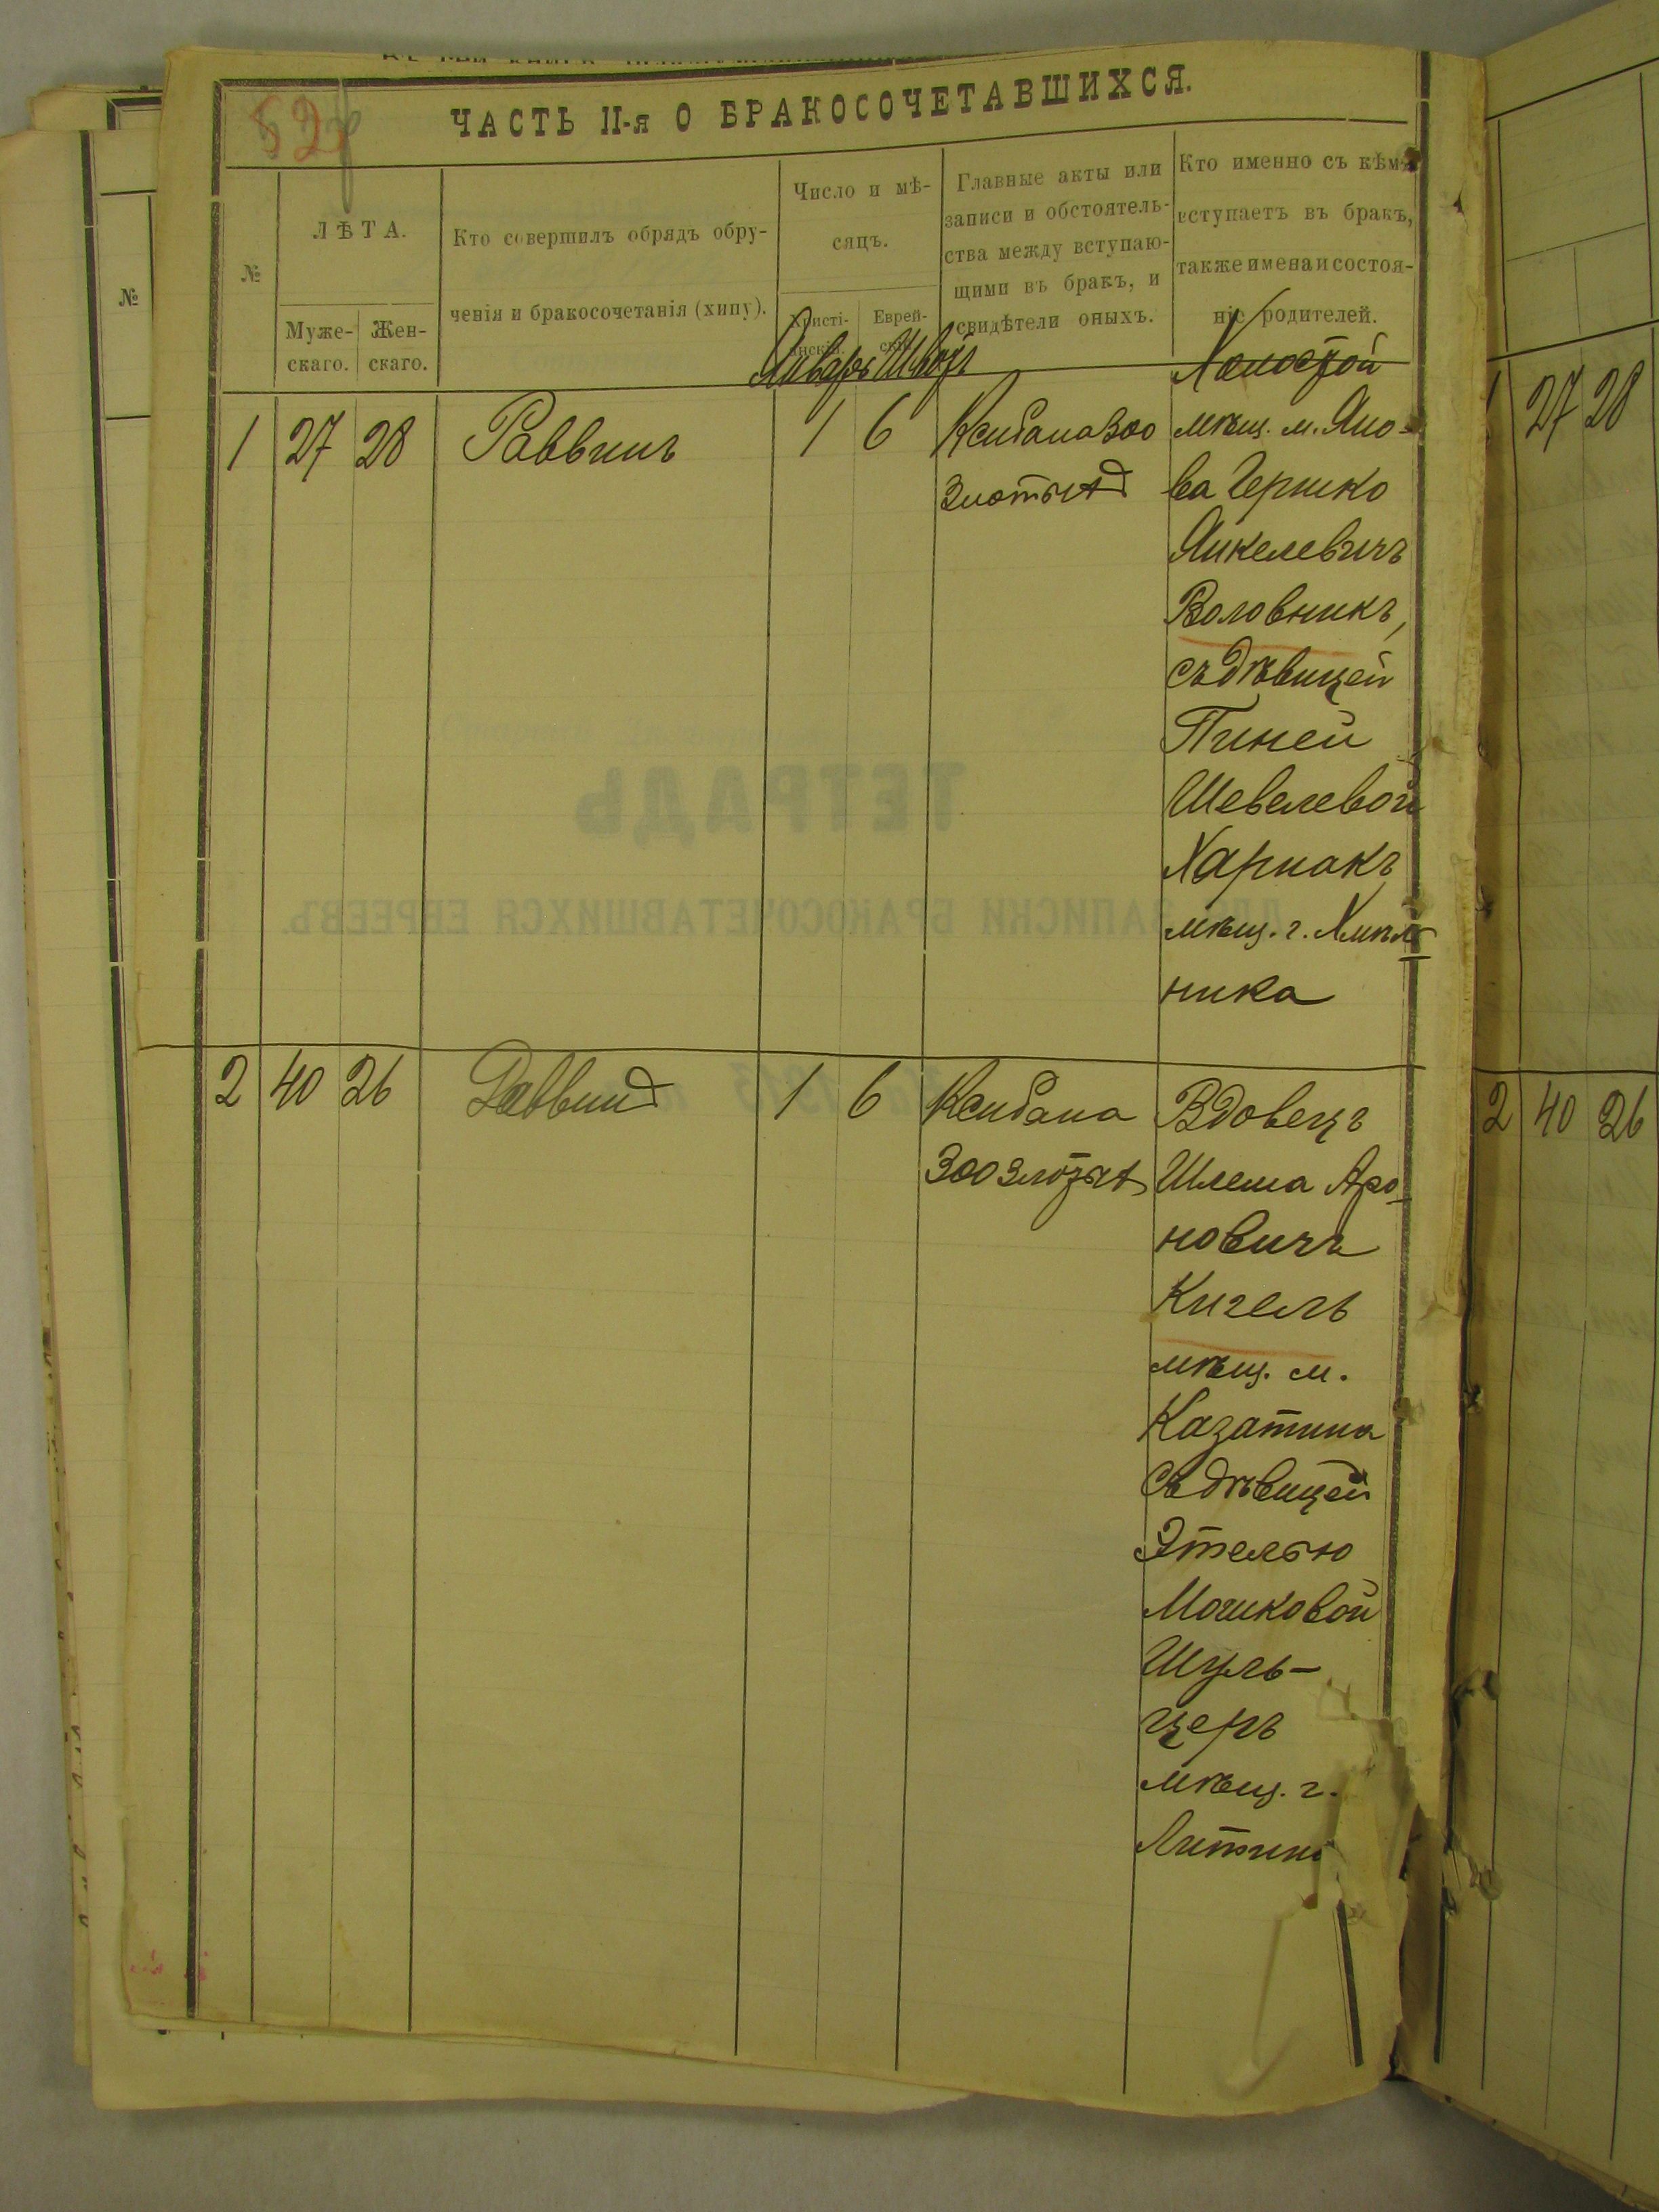 529
ЧАСТЬ II-я О БРАКОСОЧЕТАВШИХСЯ.
№
ЛѢТА.
Муже-
скаго.
Жен-
скаго.
Кто совершилъ обрядъ обру-
ченія и бракосочетанія (хипу).
Число и мѣ-
сяцъ.
Христі-
анскій.
Еврей-
скій.
Главные акты или
записи и обстоятель-
ства между вступаю-
щими въ бракъ, и
свидѣтели оныхъ.
Кто именно съ кѣмъ
вступаетъ въ бракъ,
также имена и состоя-
ніе родителей.
Январь Шватъ
Холостой
1 27 28 Раввинъ 1 6 Ксибана 300 мѣщ. м. Яно-
злотыхъ ва Гершко
Янкелевичъ
Воловникъ,
съ дѣвицей
Пиней
Шевелевой
Харнакъ
мѣщ. г. Хмѣль
ника
2 40 26 Раввинъ 1 6 Ксибана Вдовецъ
300 злотыхъ Шлема Аро-
новичъ
Кигель
мѣщ. м.
Казатина
съ дѣвицей
Этелью
Мошковой
Шуль-
церъ
мѣщ. г.
Литина
№
1 27 28
2 40 26
ТЕТРАДЬ
ДЛЯ ЗАПИСКИ БРАКОСОЧЕТАВШИХСЯ ЕВРЕЕВЪ.